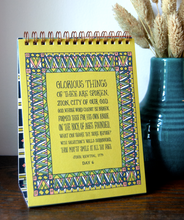 GLORIOUS THINGS
OF THEE ARE SPOKEN,
ZION, CITY OF OUR GOD.
HE WHOSE WORD CANNOT BE BROKEN,
FORMED THEE FOR HIS OWN ABODE
ON THE ROCK OF AGES FOUNDED,
WHAT CAN SHAKE THY SURE REPOSE?
WITH SALVATION'S WALLS SURROUNDED,
THOU MAY'ST SMILE AT ALL THY FOES.
JOHN NEWTON, 1779
DAY 6